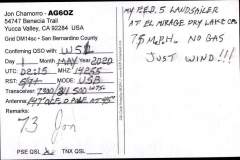 Jon Chamorro - AG6OZ
54747 Benecia Trail
Yucca Valley, CA 92284 USA
Grid DM14sc - San Bernardino County
Confirming QSO with W5L
Day 1 Month MAY Year 2020
UTC: 02:15 MHZ: 14.255
RST: 59+ MODE: USB
Transceiver: 7300/811 500 WTS.
Antenna:
Remarks:
73 Jon
PSE QSL TNX QSL
MY F.E.D. 5 LANDSAILER
AT EL MIRAGE DRY LAKE CA
75 M.P.H. NO GAS
JUST WIND!!!